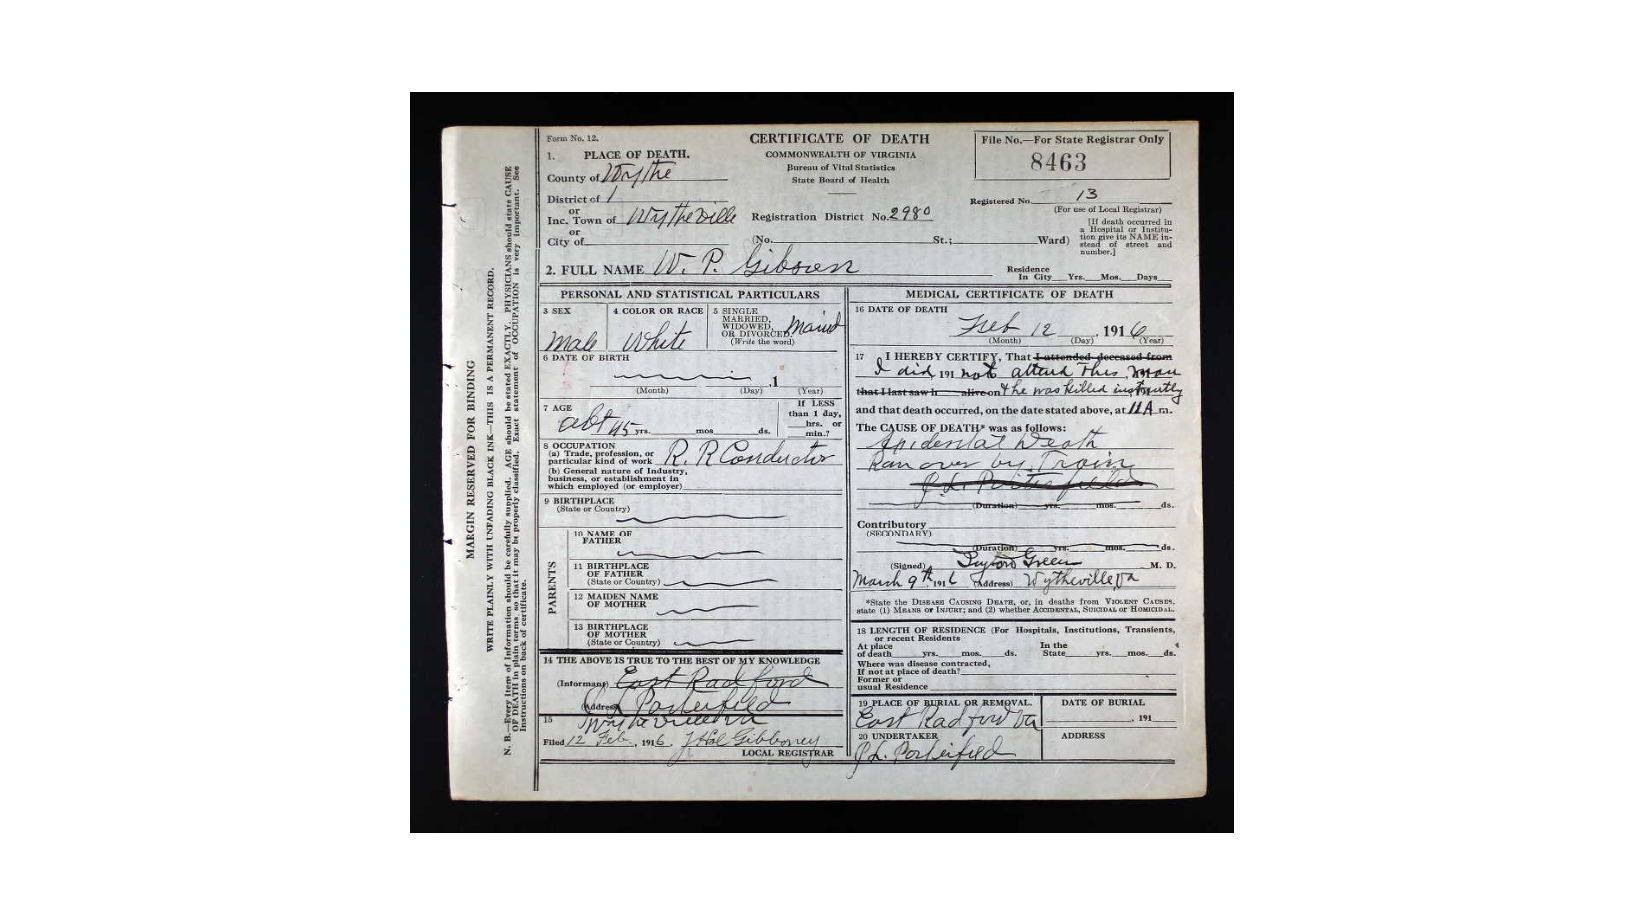 Form No. 12.
CERTIFICATE OF DEATH
COMMONWEALTH OF VIRGINIA
Bureau of Vital Statistics
State Board of Health
File No.—For State Registrar Only
8463
1. PLACE OF DEATH.
County of Wythe
District of 1
or
Inc. Town of Wytheville
Registration District No. 2980
Registered No. 13
(For use of Local Registrar)
or
City of
(No. St.; Ward)
[If death occurred in
a Hospital or Institu-
tion give its NAME in-
stead of street and
number.]
2. FULL NAME W. P. Gibson
Residence
In City Yrs. Mos. Days
PERSONAL AND STATISTICAL PARTICULARS
3 SEX
Male
4 COLOR OR RACE
White
5 SINGLE
MARRIED,
WIDOWED,
OR DIVORCED.
(Write the word)
6 DATE OF BIRTH
, 1
(Month) (Day) (Year)
7 AGE
abt 45 yrs. mos ds.
If LESS
than 1 day,
hrs. or
min.?
8 OCCUPATION
(a) Trade, profession, or
particular kind of work R. R Conductor
(b) General nature of Industry,
business, or establishment in
which employed (or employer)
9 BIRTHPLACE
(State or Country)
PARENTS
10 NAME OF
FATHER
11 BIRTHPLACE
OF FATHER
(State or Country)
12 MAIDEN NAME
OF MOTHER
13 BIRTHPLACE
OF MOTHER
(State or Country)
14 THE ABOVE IS TRUE TO THE BEST OF MY KNOWLEDGE
(Informant) East Radford
(Address Porterfield
15 Wytheville Va
Filed 12 Feb, 1916. Gibboney
LOCAL REGISTRAR
MEDICAL CERTIFICATE OF DEATH
16 DATE OF DEATH
Feb 12, 1916
(Month) (Day) (Year)
17 I HEREBY CERTIFY, That I attended deceased from
I did, 191 not attend this man
that I last saw h alive on & he was killed instantly
and that death occurred, on the date stated above, at 11A m.
The CAUSE OF DEATH* was as follows:
Death
Ran over by Train
J. L. Porterfield
(Duration) yrs. mos. ds.
Contributory
(SECONDARY)
(Duration) yrs. mos. ds.
(Signed) Green M. D.
March 9th, 1916 (Address) Wytheville, Va
*State the DISEASE CAUSING DEATH, or, in deaths from VIOLENT CAUSES,
state (1) MEANS OF INJURY; and (2) whether ACCIDENTAL, SUICIDAL or HOMICIDAL.
18 LENGTH OF RESIDENCE (For Hospitals, Institutions, Transients,
or recent Residents
At place
of death yrs. mos. ds.
In the
State yrs. mos. ds.
Where was disease contracted,
If not at place of death?
Former or
usual Residence
19 PLACE OF BURIAL OR REMOVAL.
East Radford Va
DATE OF BURIAL
, 191
20 UNDERTAKER
J. L. Porterfield
ADDRESS
MARGIN RESERVED FOR BINDING
WRITE PLAINLY WITH UNFADING BLACK INK—THIS IS A PERMANENT RECORD.
N. B.—Every item of Information should be carefully supplied. AGE should be stated EXACTLY. PHYSICIANS should state CAUSE
OF DEATH in plain terms so that it may be properly classified. Exact statement of OCCUPATION is very important. See
instructions on back of certificate.